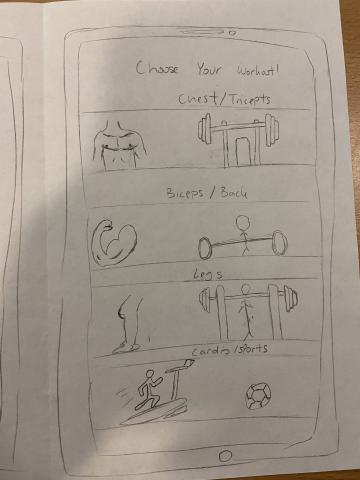 Choose Your Workout!
Chest/Tricepts
Biceps / Back
Legs
Cardio/sports